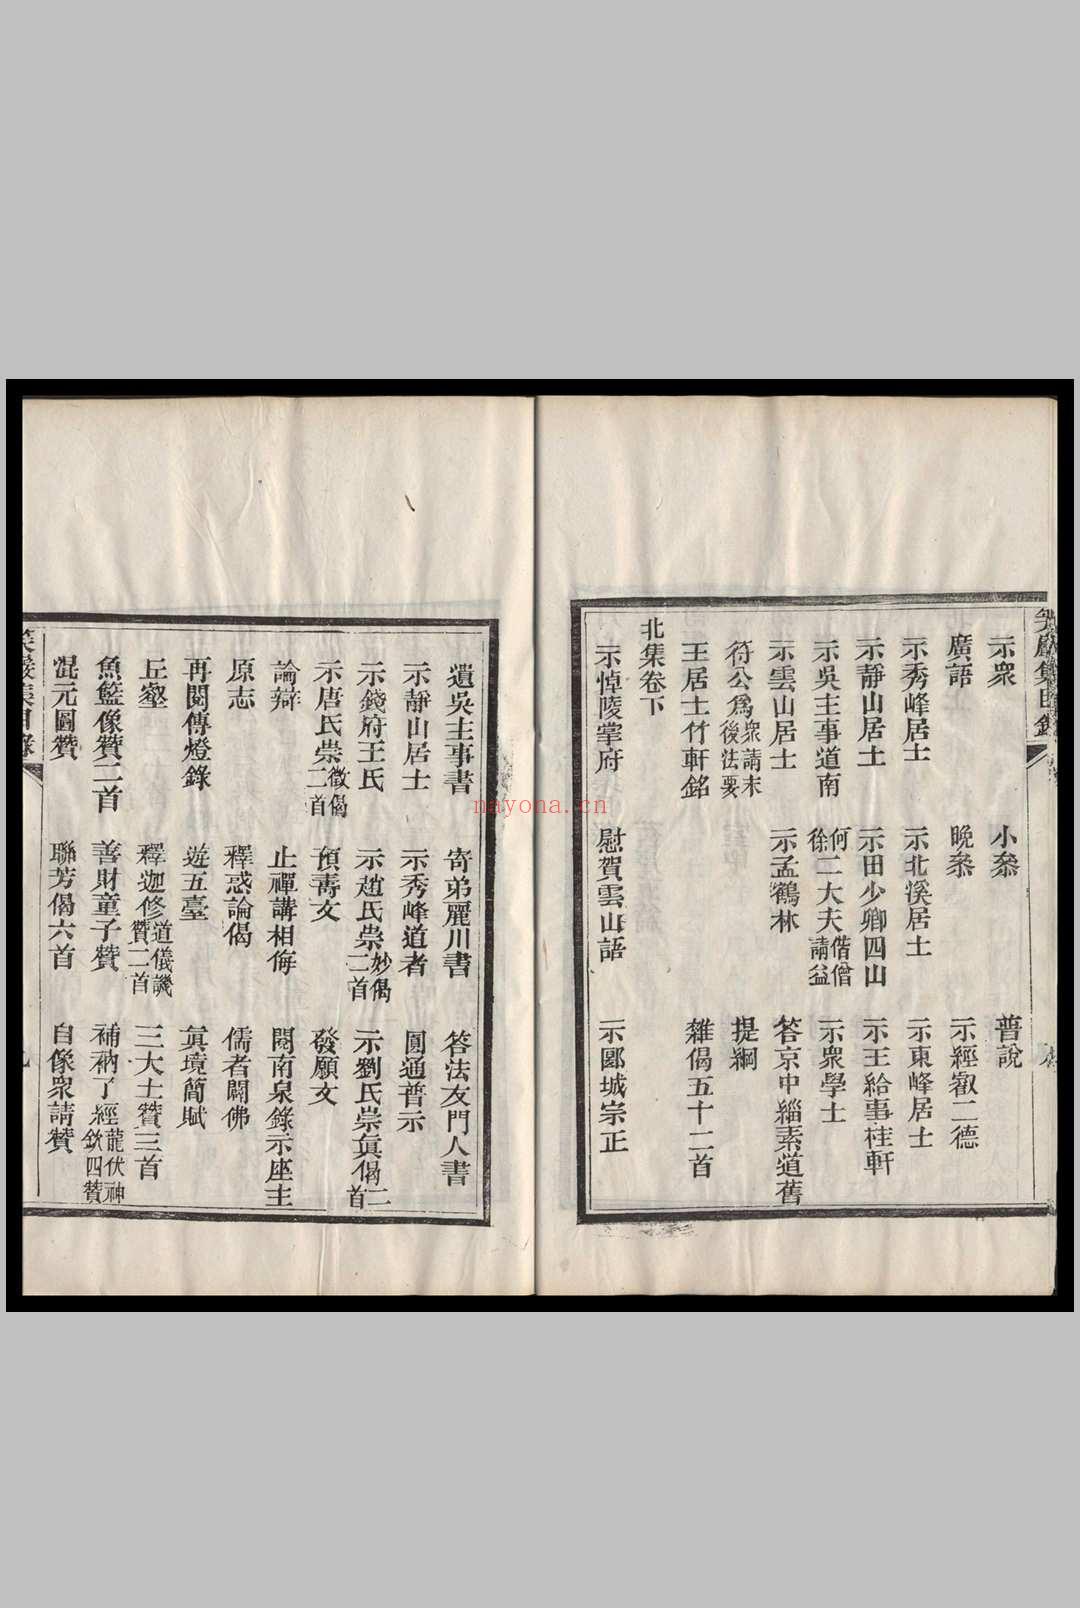 笑巖集目錄
示衆 小叅 普說
廣語 晚叅 示經叡二德
示秀峰居士 示北溪居士 示東峰居士
示靜山居士 示田少卿四山 示王給事桂軒
示吳主事道南 何徐二大夫偕僧請益 示衆學士
示雲山居士 示孟鶴林 答京中緇素道舊
符公爲衆請末後法要 提綱
王居士竹軒銘 雜偈五十二首
北集卷下
示悼陵掌府 慰賀雲山語 示郾城宗正
遺吳主事書 寄弟麗川書 答法友門人書
示靜山居士 示秀峰道者 圓通普示
示錢府王氏 示趙氏崇妙偈二首 示劉氏崇眞偈二首
示唐氏崇徵偈二首 預薦文 發願文
論辯 止禪講相侮 閱南泉錄示座主
原志 釋惑論偈 儒者闢佛
再閱傳燈錄 遊五臺 眞境簡賦
丘壑 釋迦修道儀譏贊二首 三大士贊三首
魚籃像贊二首 善財童子贊 補衲了經龍伏神欽四贊
混元圖贊 聯芳偈六首 自像衆請贊
笑巖集目錄
九
nayona.cn